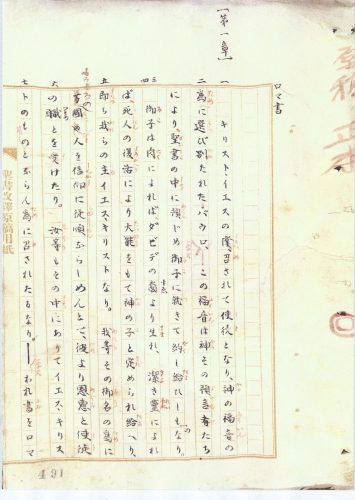 ロマ書
〔第一章〕
一 キリスト・イエスの僕、召されて使徒となり、神の福音の
二 為に選び別たれたパウロ、この福音は神その預言者たち
により、聖書の中に預じめ御子に就きて約し給ひしものなり。
三 四 御子は肉によれば、ダビデの裔より生れ、潔き霊によれ
ば、死人の復活により大能をもて神の子と定められ給へり、
五 即ち我らの主イエス・キリストなり。我等その御名の為に
國の人を信仰に従順ならしめんとて、彼より恩惠と使徒
六 の職とを受けたり。汝等もその中にありてイエス・キリス
七 トのものとならん為に召されたるなり。―われ書をロマ
聖書改譯原稿用紙
491